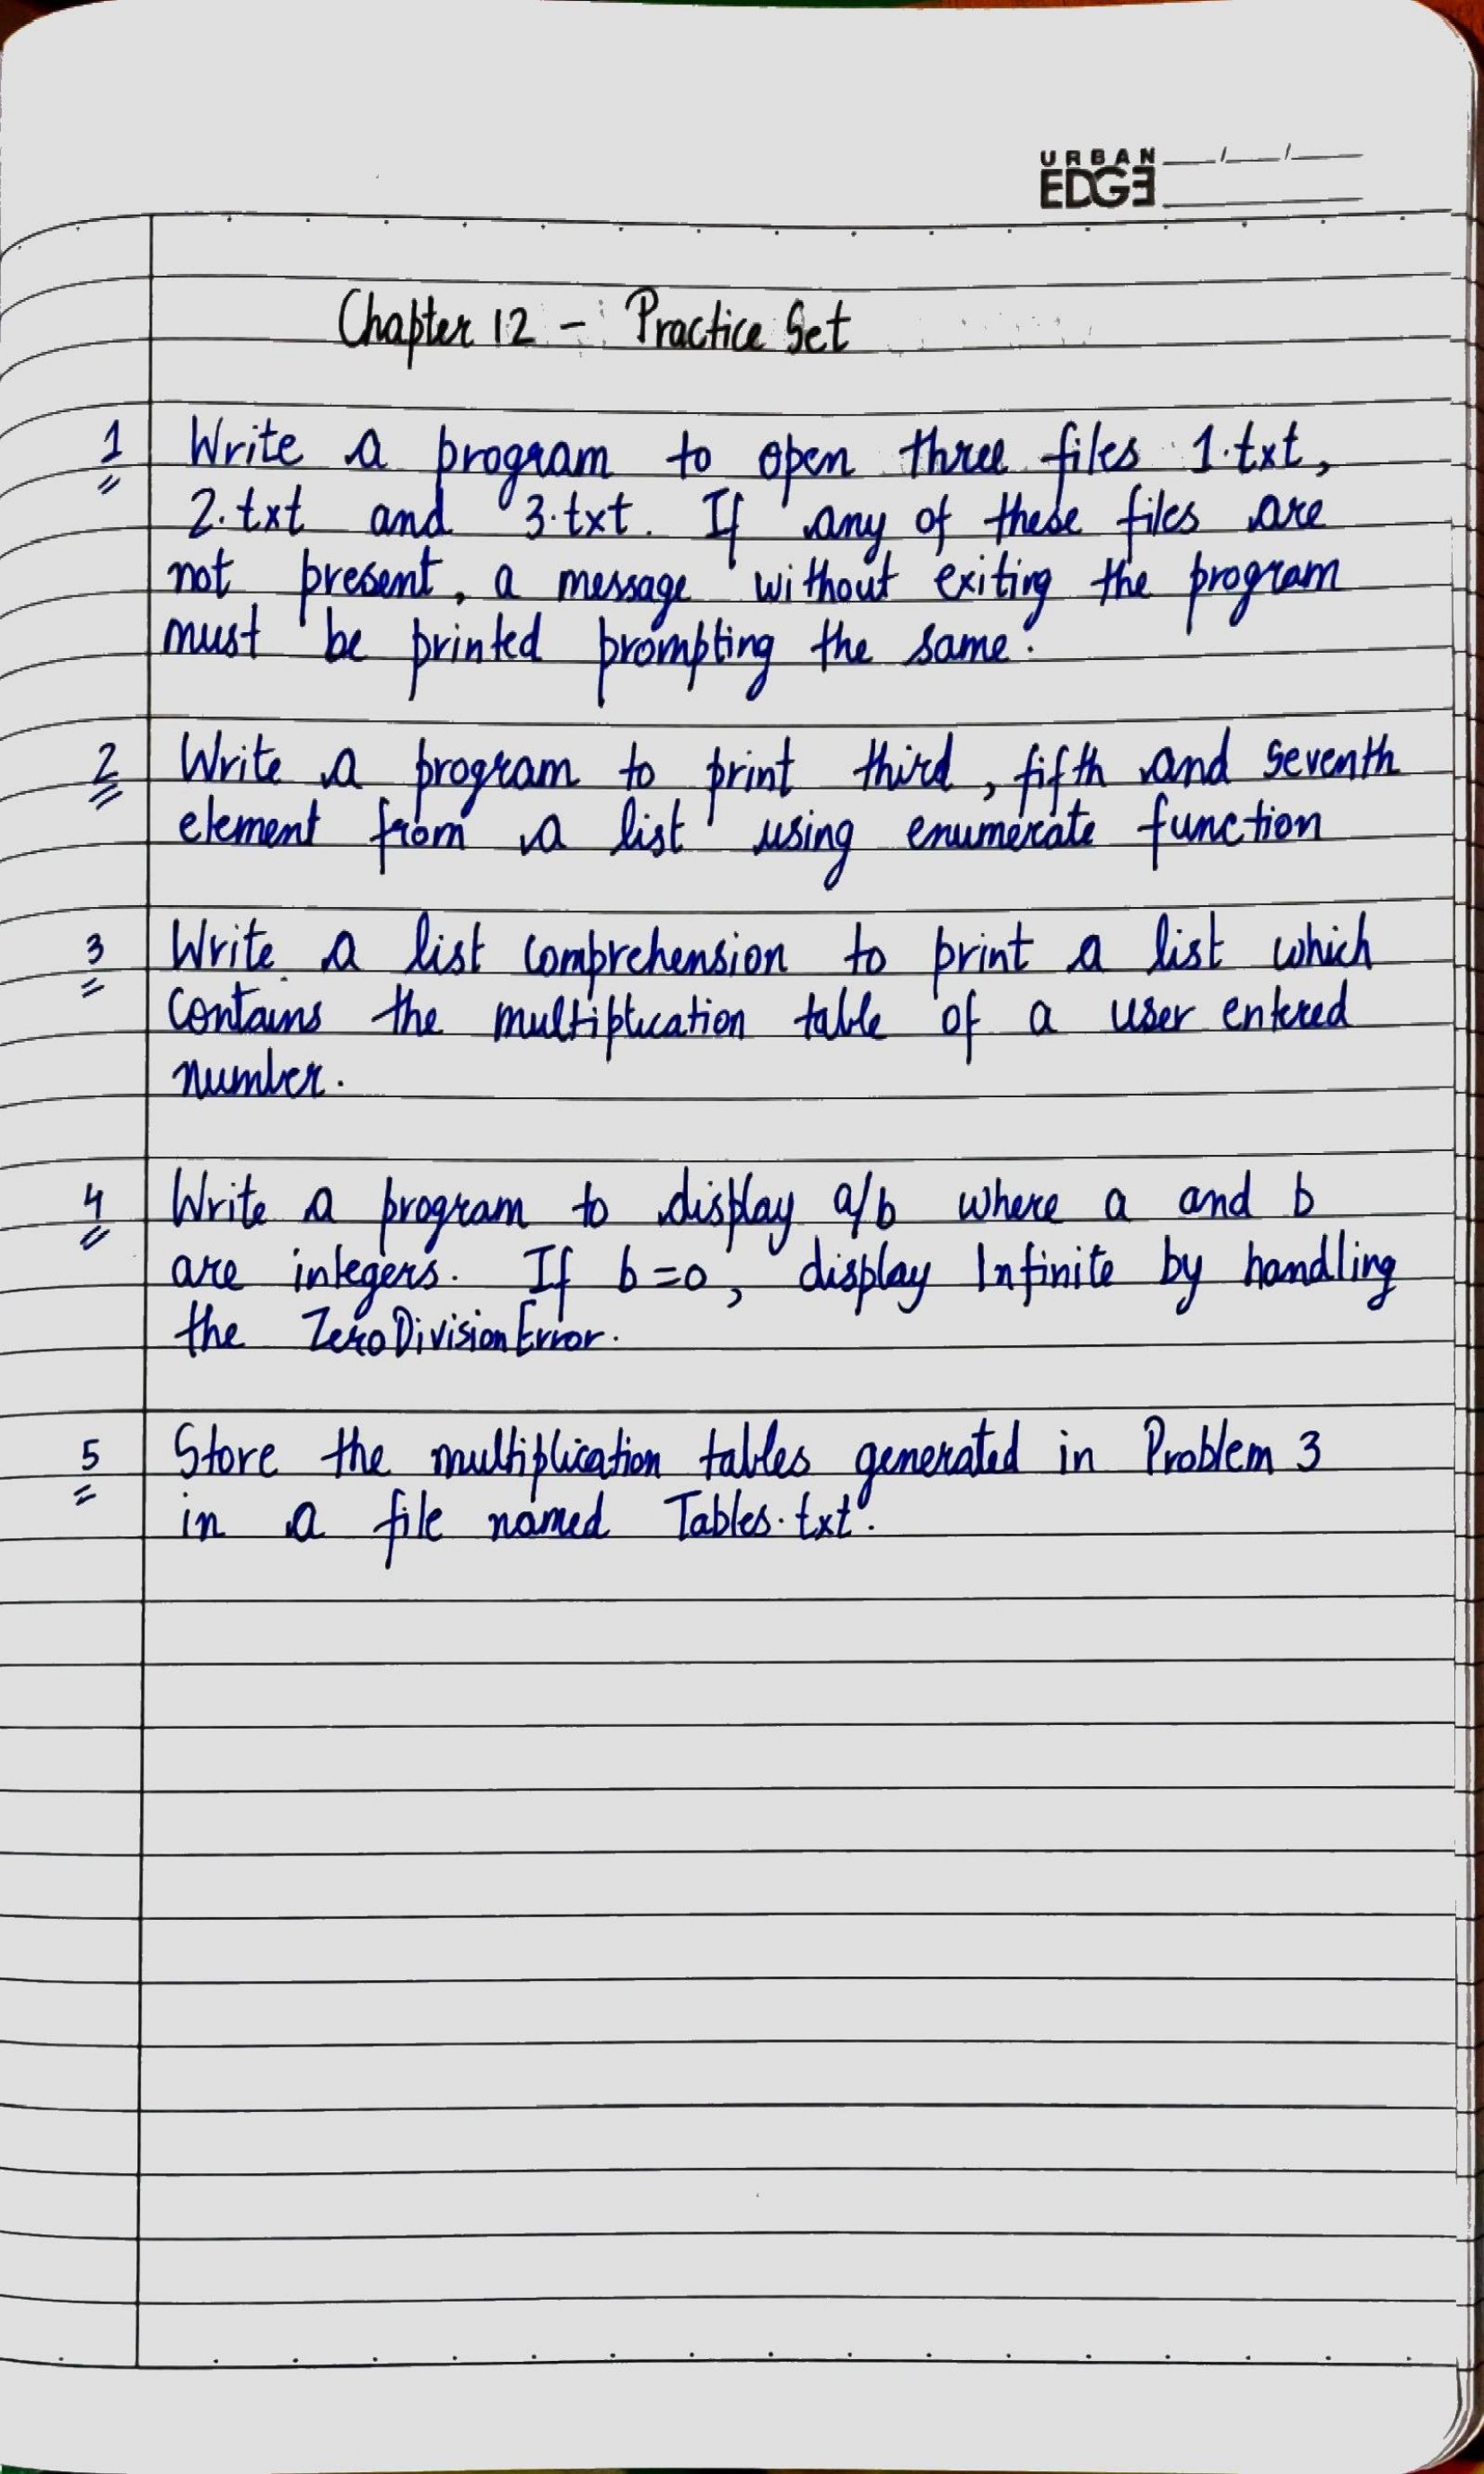 URBAN
EDGE
Chapter 12 - Practice Set
1 Write a program to open three files 1.txt,
2.txt and 3.txt. If any of these files are
not present, a message without exiting the program
must be printed prompting the same.
2 Write a program to print third, fifth and seventh
element from a list using enumerate function
3 Write a list comprehension to print a list which
contains the multiplication table of a user entered
number.
4 Write a program to display a/b where a and b
are integers. If b=0, display Infinite by handling
the ZeroDivisionError.
5 Store the multiplication tables generated in Problem 3
in a file named Tables.txt.